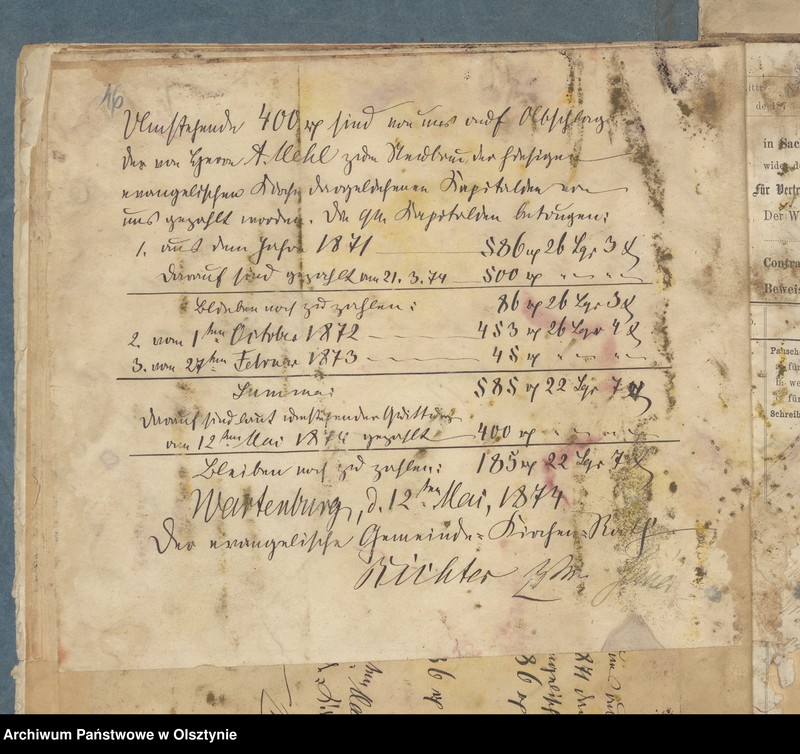 16
Umstehende 400 rp sind von uns auf Abschlag
der von Herrn A. Mehl zum Neubau der hiesigen
evangelischen Kirche dargeliehenen Kapitalien von
uns gezahlt worden. Die qu. Kapitalien betragen:
1. aus dem Jahre 1871 586 rp 26 Sgr 3 ₰
Darauf sind gezahlt am 21. 3. 74 500 rp " "
Bleiben noch zu zahlen: 86 rp 26 Sgr 3 ₰
2. vom 1ten October 1872 453 rp 26 Sgr 4 ₰
3. vom 27ten Februar 1873 45 rp " "
Summa: 585 rp 22 Sgr 7 ₰
Darauf sind laut umstehender Quittung
am 12ten Mai 1874 gezahlt 400 rp " "
Bleiben noch zu zahlen: 185 rp 22 Sgr 7 ₰
Wartenburg, d. 12ten Mai, 1874
Der evangelische Gemeinde-Kirchen-Rath
Richter
in Sach
Für Vertr
Der W
Contra
Beweis
Pausch
für
Schreib
86 rp
86 rp
Archiwum Państwowe w Olsztynie